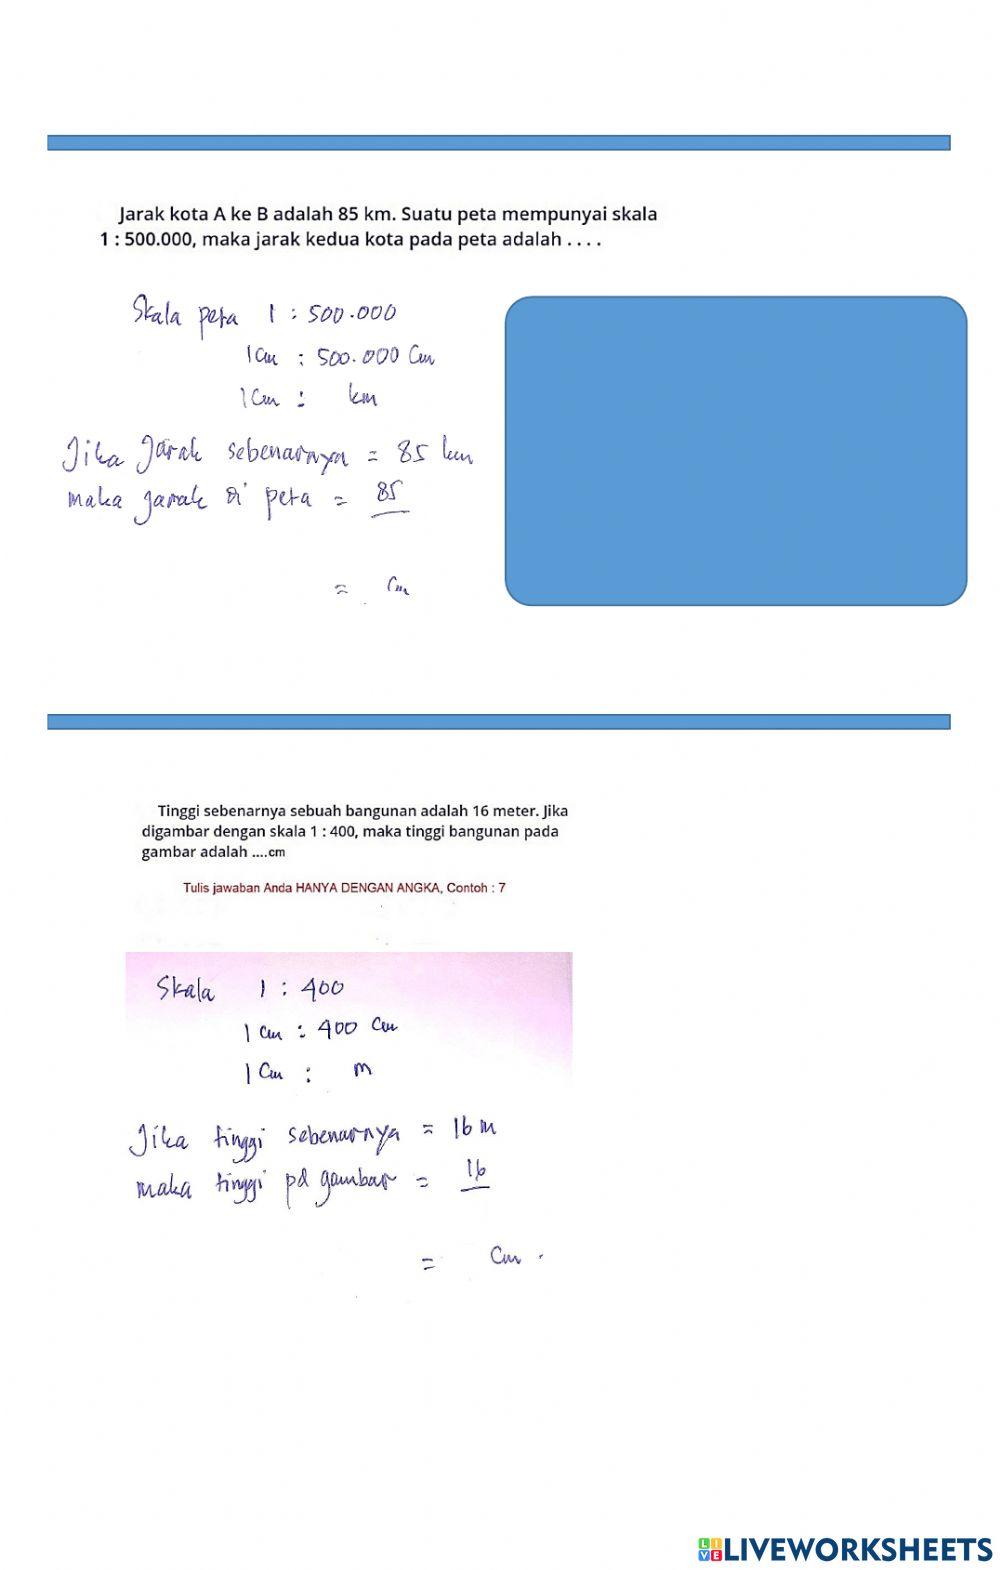 Jarak kota A ke B adalah 85 km. Suatu peta mempunyai skala
1 : 500.000, maka jarak kedua kota pada peta adalah . . . .
Skala peta 1 : 500.000
1 cm : 500.000 cm
1 cm : km
Jika Jarak sebenarnya = 85 km
maka jarak di peta = 85
= cm
Tinggi sebenarnya sebuah bangunan adalah 16 meter. Jika
digambar dengan skala 1 : 400, maka tinggi bangunan pada
gambar adalah ....cm
Tulis jawaban Anda HANYA DENGAN ANGKA, Contoh : 7
Skala 1 : 400
1 cm : 400 cm
1 cm : m
Jika tinggi sebenarnya = 16 m
maka tinggi pd gambar = 16
= cm .
LIVE LIVEWORKSHEETS